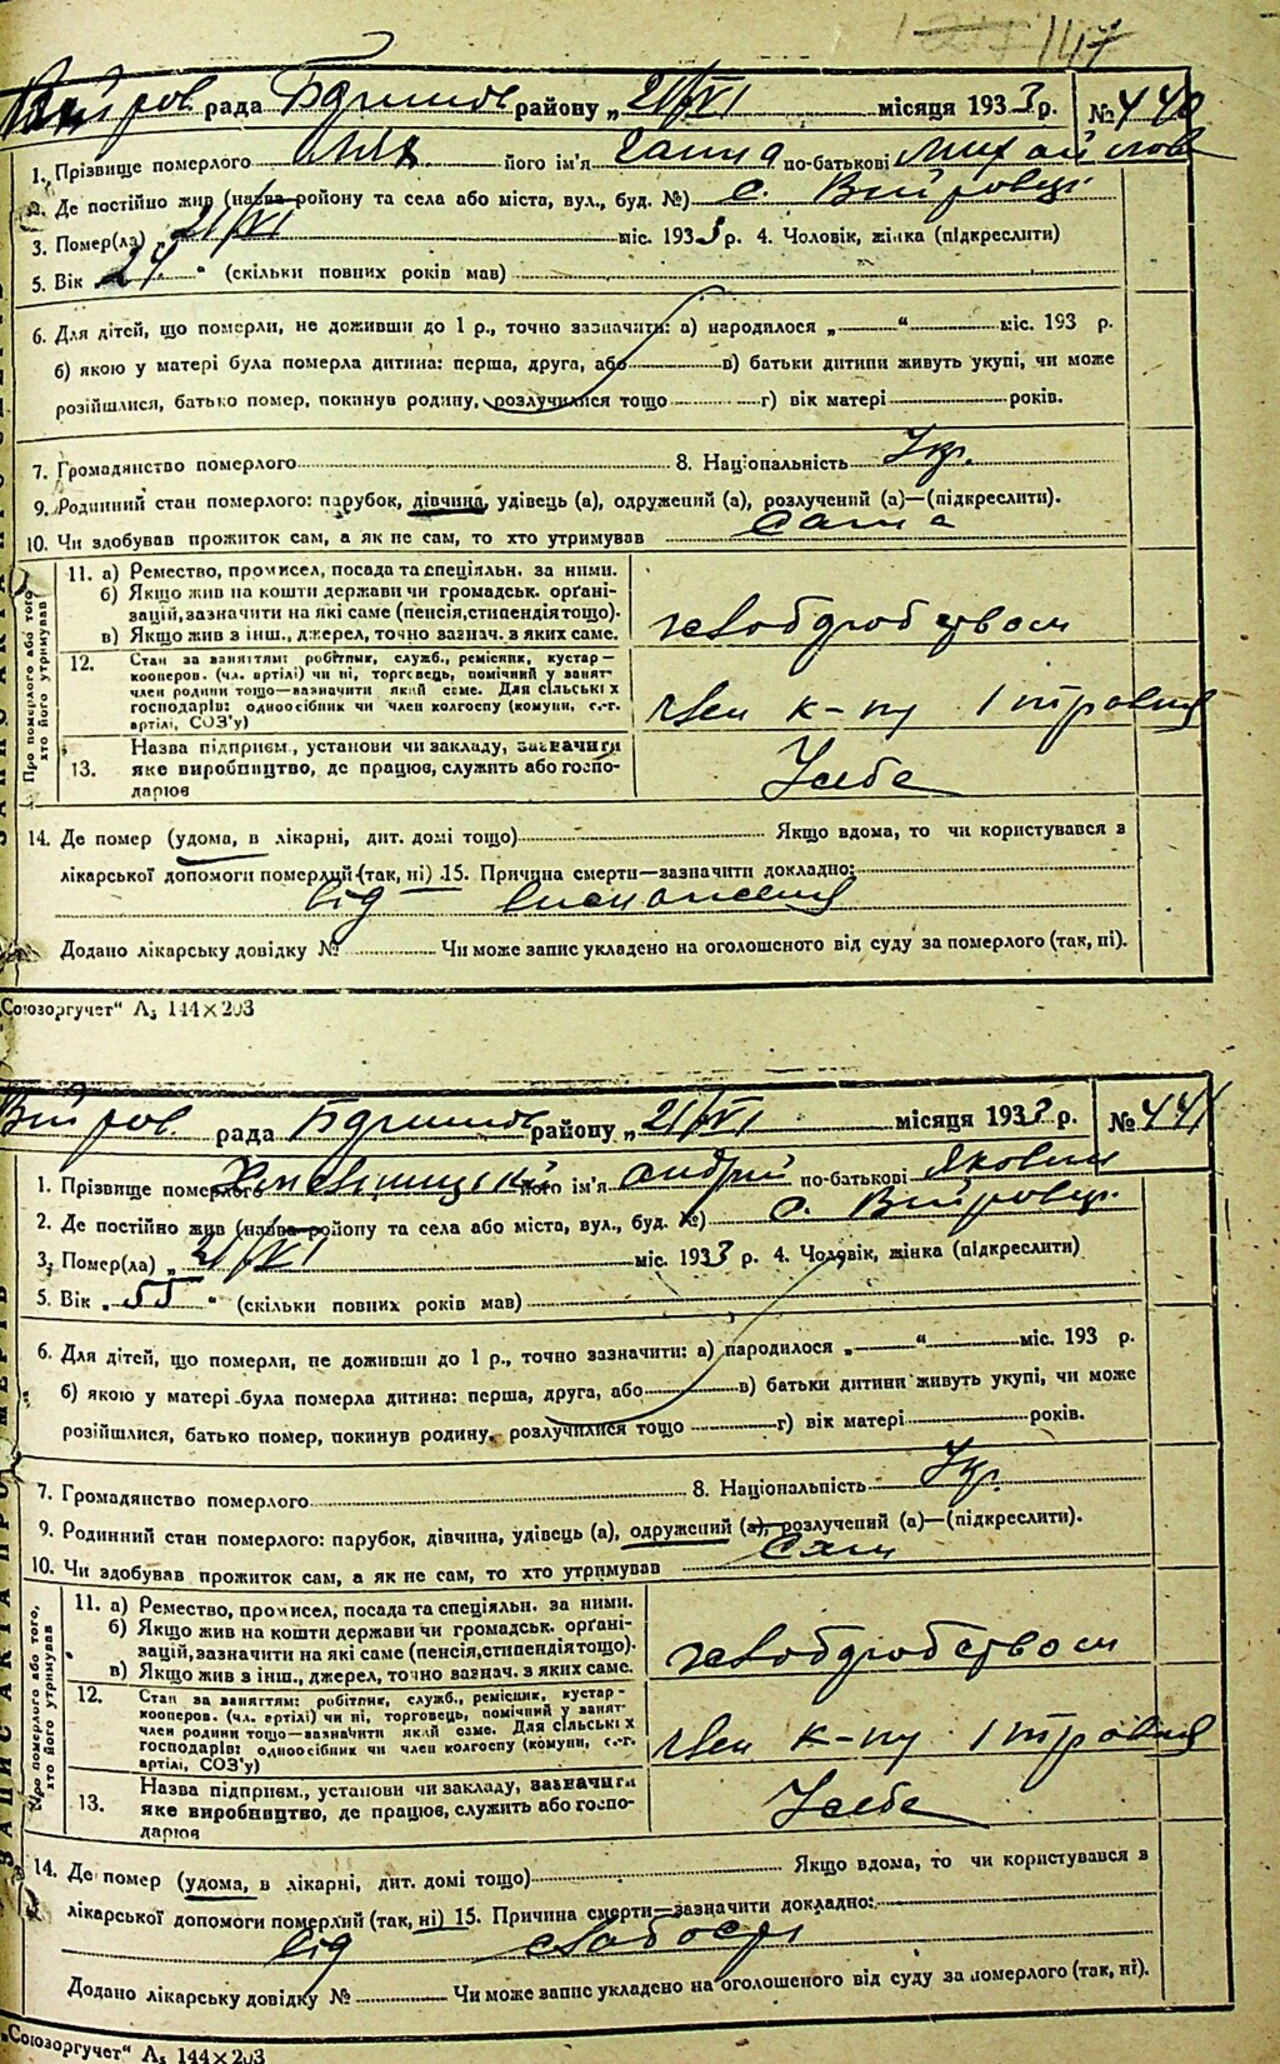 147
рада районУ „21/VI місяця 1933 р. № 440
1. Прізвище померлого його ім'я Ганна по-батькові Михайлов
2. Де постійно жив (назва району та села або міста, вул., буд. №) с. Війтовці
3. Помер(ла) 21/VI міс. 1933 р. 4. Чоловік, жінка (підкреслити)
5. Вік 24 " (скільки повних років мав)
6. Для дітей, що померли, не доживши до 1 р., точно зазначити: а) народилося „ “ міс. 193 р.
б) якою у матері була померла дитина: перша, друга, або в) батьки дитини живуть укупі, чи може
розійшлися, батько помер, покинув родину, розлучилися тощо г) вік матері років.
7. Громадянство померлого 8. Національність Укр.
9. Родинний стан померлого: парубок, дівчина, удівець (а), одружений (а), розлучений (а)—(підкреслити).
10. Чи здобував прожиток сам, а як не сам, то хто утримував сама
Про померлого або того, хто його утримував
11. а) Ремество, промисел, посада та спеціяльн. за ними.
б) Якщо жив на кошти держави чи громадськ. орґані-
зацій, зазначити на які саме (пенсія, стипендія тощо).
в) Якщо жив з інш., джерел, точно зазнач. з яких саме.
хліборобством
12. Стан за заняттям: робітник, служб., ремісник, кустар—
кооперов. (чл. артілі) чи ні, торговець, помічний у занят-
член родини тощо—зазначити який саме. Для сільських
господарів: одноосібник чи член колгоспу (комуни, с.-г.
артілі, СОЗ'у)
член к-пу 1 травня
13. Назва підприєм., установи чи закладу, зазначити
яке виробництво, де працює, служить або госпо-
дарює
У себе
14. Де помер (удома, в лікарні, дит. домі тощо) Якщо вдома, то чи користувався з
лікарської допомоги померлий (так, ні) 15. Причина смерти—зазначити докладно:
від виснаження
Додано лікарську довідку № Чи може запис укладено на оголошеного від суду за померлого (так, ні).
„Союзоргучет“ А₅ 144×203
рада району „21/VI місяця 1933 р. № 441
1. Прізвище померлого його ім'я Андрій по-батькові Якович
2. Де постійно жив (назва району та села або міста, вул., буд. №) с. Війтовці
3. Помер(ла) „ 21/VI міс. 1933 р. 4. Чоловік, жінка (підкреслити)
5. Вік „ 55 “ (скільки повних років мав)
6. Для дітей, що померли, не доживши до 1 р., точно зазначити: а) народилося „ “ міс. 193 р.
б) якою у матері була померла дитина: перша, друга, або в) батьки дитини живуть укупі, чи може
розійшлися, батько помер, покинув родину, розлучилися тощо г) вік матері років.
7. Громадянство померлого 8. Національність Укр.
9. Родинний стан померлого: парубок, дівчина, удівець (а), одружений (а), розлучений (а)—(підкреслити).
10. Чи здобував прожиток сам, а як не сам, то хто утримував сам
Про померлого або того, хто його утримував
11. а) Ремество, промисел, посада та спеціяльн. за ними.
б) Якщо жив на кошти держави чи громадськ. орґані-
зацій, зазначити на які саме (пенсія, стипендія тощо).
в) Якщо жив з інш., джерел, точно зазнач. з яких саме.
хліборобством
12. Стан за заняттям: робітник, служб., ремісник, кустар-
кооперов. (чл. артілі) чи ні, торговець, помічний у занят-
член родини тощо—зазначити який саме. Для сільських
господарів: одноосібник чи член колгоспу (комуни, с.-г.
артілі, СОЗ'у)
член к-пу 1 травня
13. Назва підприєм., установи чи закладу, зазначити
яке виробництво, де працює, служить або госпо-
дарює
У себе
14. Де помер (удома, в лікарні, дит. домі тощо) Якщо вдома, то чи користувався з
лікарської допомоги померлий (так, ні) 15. Причина смерти—зазначити докладно:
від слабості
Додано лікарську довідку № Чи може запис укладено на оголошеного від суду за померлого (так, ні).
„Союзоргучет“ А₅ 144×203